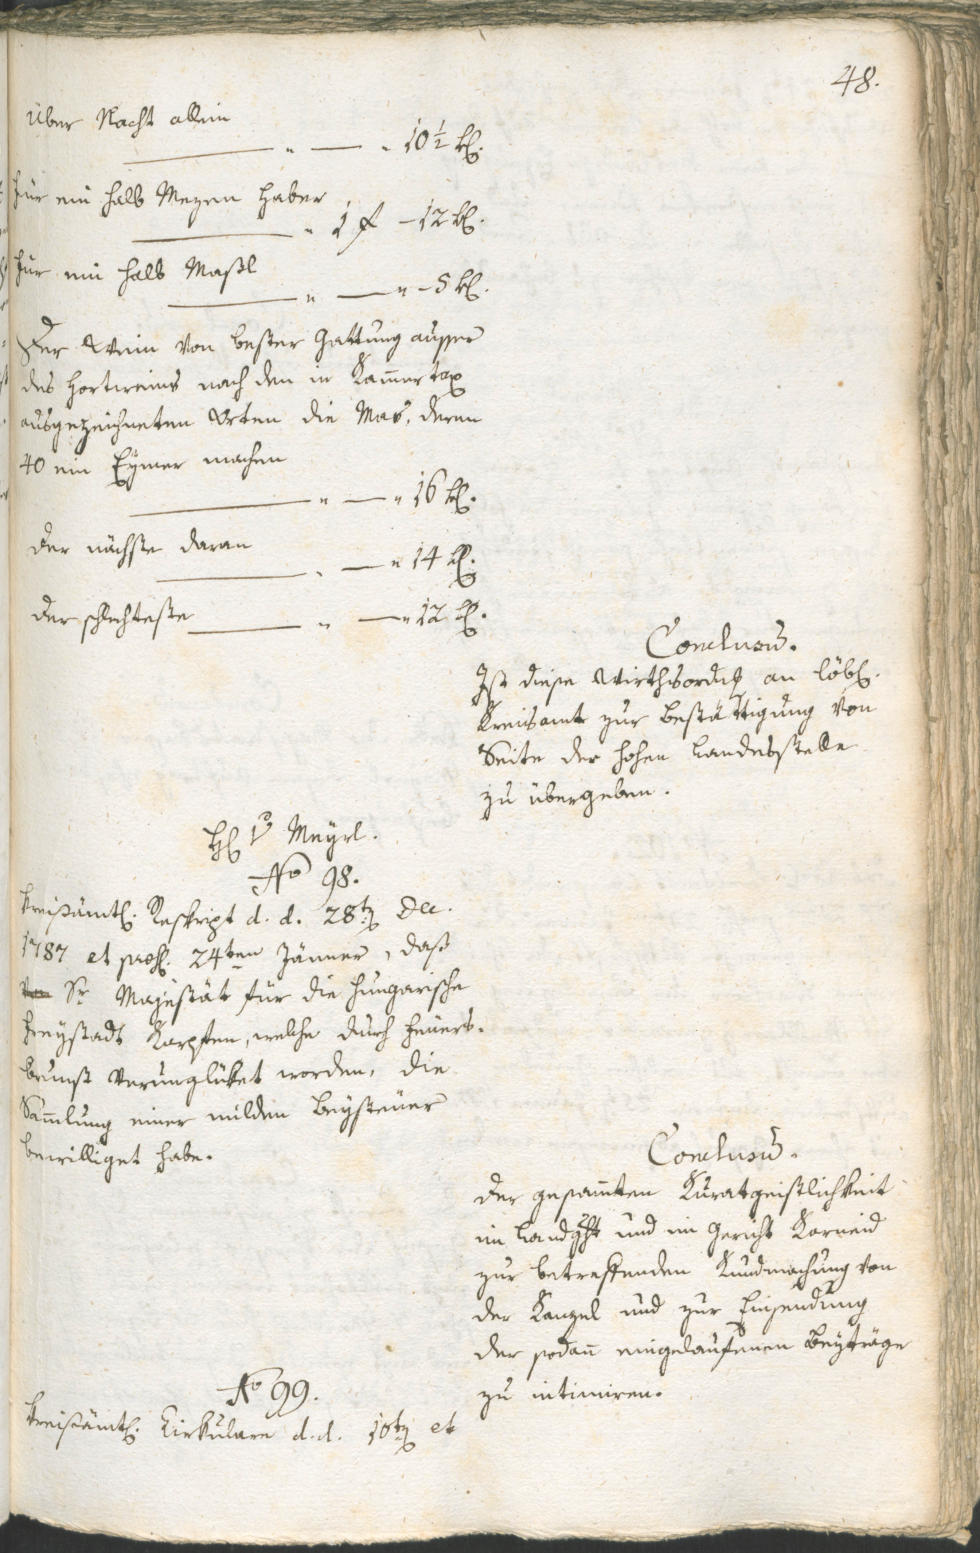 48.
Über Nacht allein
" — " 10 1/2 kr.
Für ein halb Mezen Haber
" 1 f — 12 kr.
Für ein halb Maßl
" — " – 5 kr.
Der Wein von bester Gattung ausser
des Hortweins nach den in Kamertax
ausgezeichneten Orten die Mas, deren
40 ein Eymer machen
" — " 16 kr.
der nächste daran
" — " 14 kr.
der schlechteste " — " 12 kr.
Conclusum.
Ist diese Wirthsordng an löbl.
Kreisamt zur Bestättigung von
Seite der hohen Landesstelle
zu übergeben.
Meyrl.
No 98.
Kreißämtl. Reskript d. d. 28ten Dec.
1787 et präs. 24ten Jänner, daß
Sr Majestät für die hungarische
Freystadt Karpfen, welche durch Feuers-
brunst verunglüket worden, die
Samlung einer milden Beysteuer
bewilliget habe.
Conclusum.
der gesamten Kuratgeistlichkeit
im Landght und im Gericht Karneid
zur betreffenden Kundmachung von
der Kanzel und zur Einsendung
der sodann eingelaufenen Beyträge
zu intimiren.
No 99.
Kreißämtl. Cirkulare d. d. 10ten et